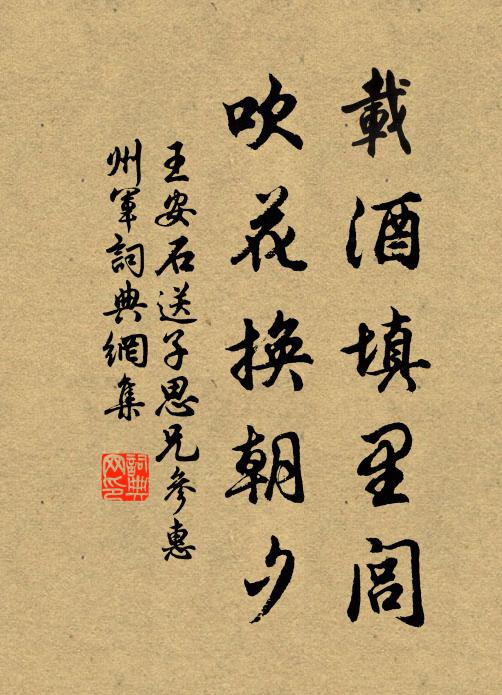 載酒填里閭
吹花換朝夕
王安石送子思兄參惠
州軍詞典網集
詞典
网印